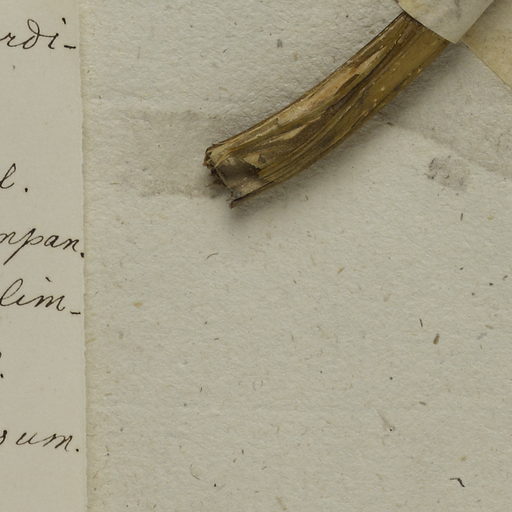 rdi-
l.
npan.
lim-
sum.